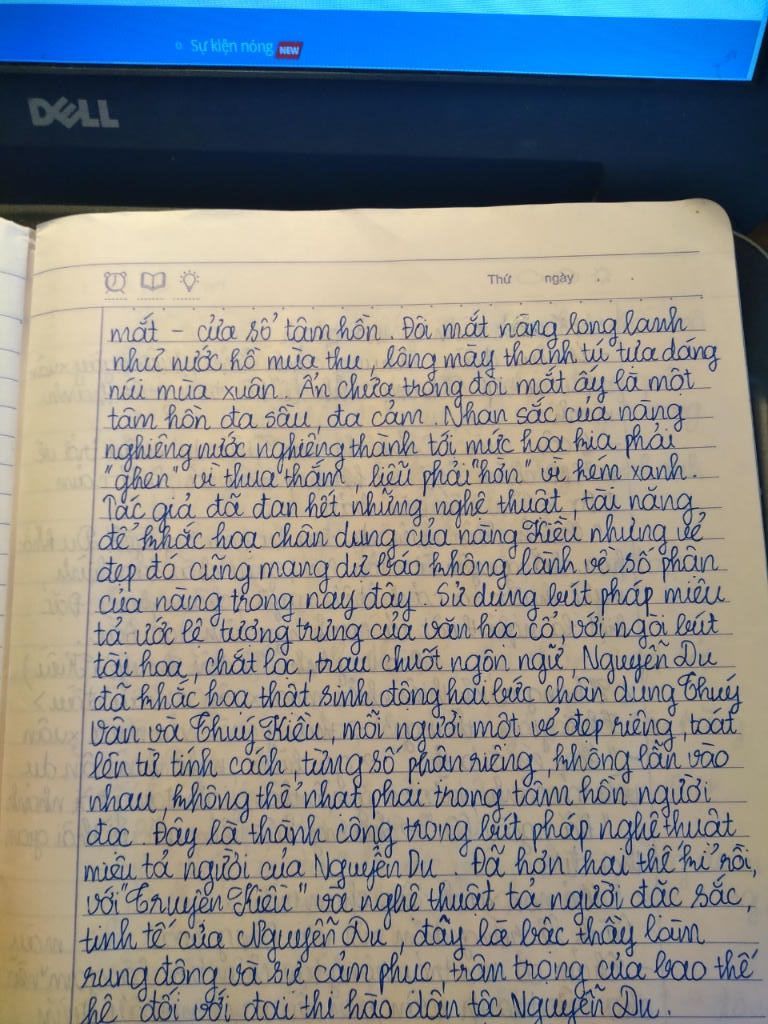 Sự kiện nóng NEW
DELL
Thứ ngày
mắt - cửa sổ tâm hồn. Đôi mắt nàng long lanh
như nước hồ mùa thu, lông mày thanh tú tựa dáng
núi mùa xuân. Ẩn chứa trong đôi mắt ấy là một
tâm hồn đa sầu, đa cảm. Nhan sắc của nàng
nghiêng nước nghiêng thành tới mức hoa kia phải
"ghen" vì thua thắm, liễu phải "hờn" vì kém xanh.
Tác giả đã đan hết những nghệ thuật, tài năng
để khắc hoạ chân dung của nàng Kiều nhưng vẻ
đẹp đó cũng mang dự báo không lành về số phận
của nàng trong nay đây. Sử dụng bút pháp miêu
tả ước lệ tượng trưng của văn học cổ, với ngòi bút
tài hoa, chắt lọc, trau chuốt ngôn ngữ, Nguyễn Du
đã khắc hoạ thật sinh động hai bức chân dung Thuý
Vân và Thuý Kiều, mỗi người một vẻ đẹp riêng, toát
lên từ tính cách, từng số phận riêng, không lẫn vào
nhau, không thể nhạt phai trong tâm hồn người
đọc. Đây là thành công trong bút pháp nghệ thuật
miêu tả người của Nguyễn Du. Đã hơn hai thế kỉ rồi,
với "Truyện Kiều" và nghệ thuật tả người đặc sắc,
tinh tế của Nguyễn Du, đây là bậc thầy làm
rung động và sự cảm phục, trân trọng của bao thế
hệ đối với đại thi hào dân tộc Nguyễn Du.